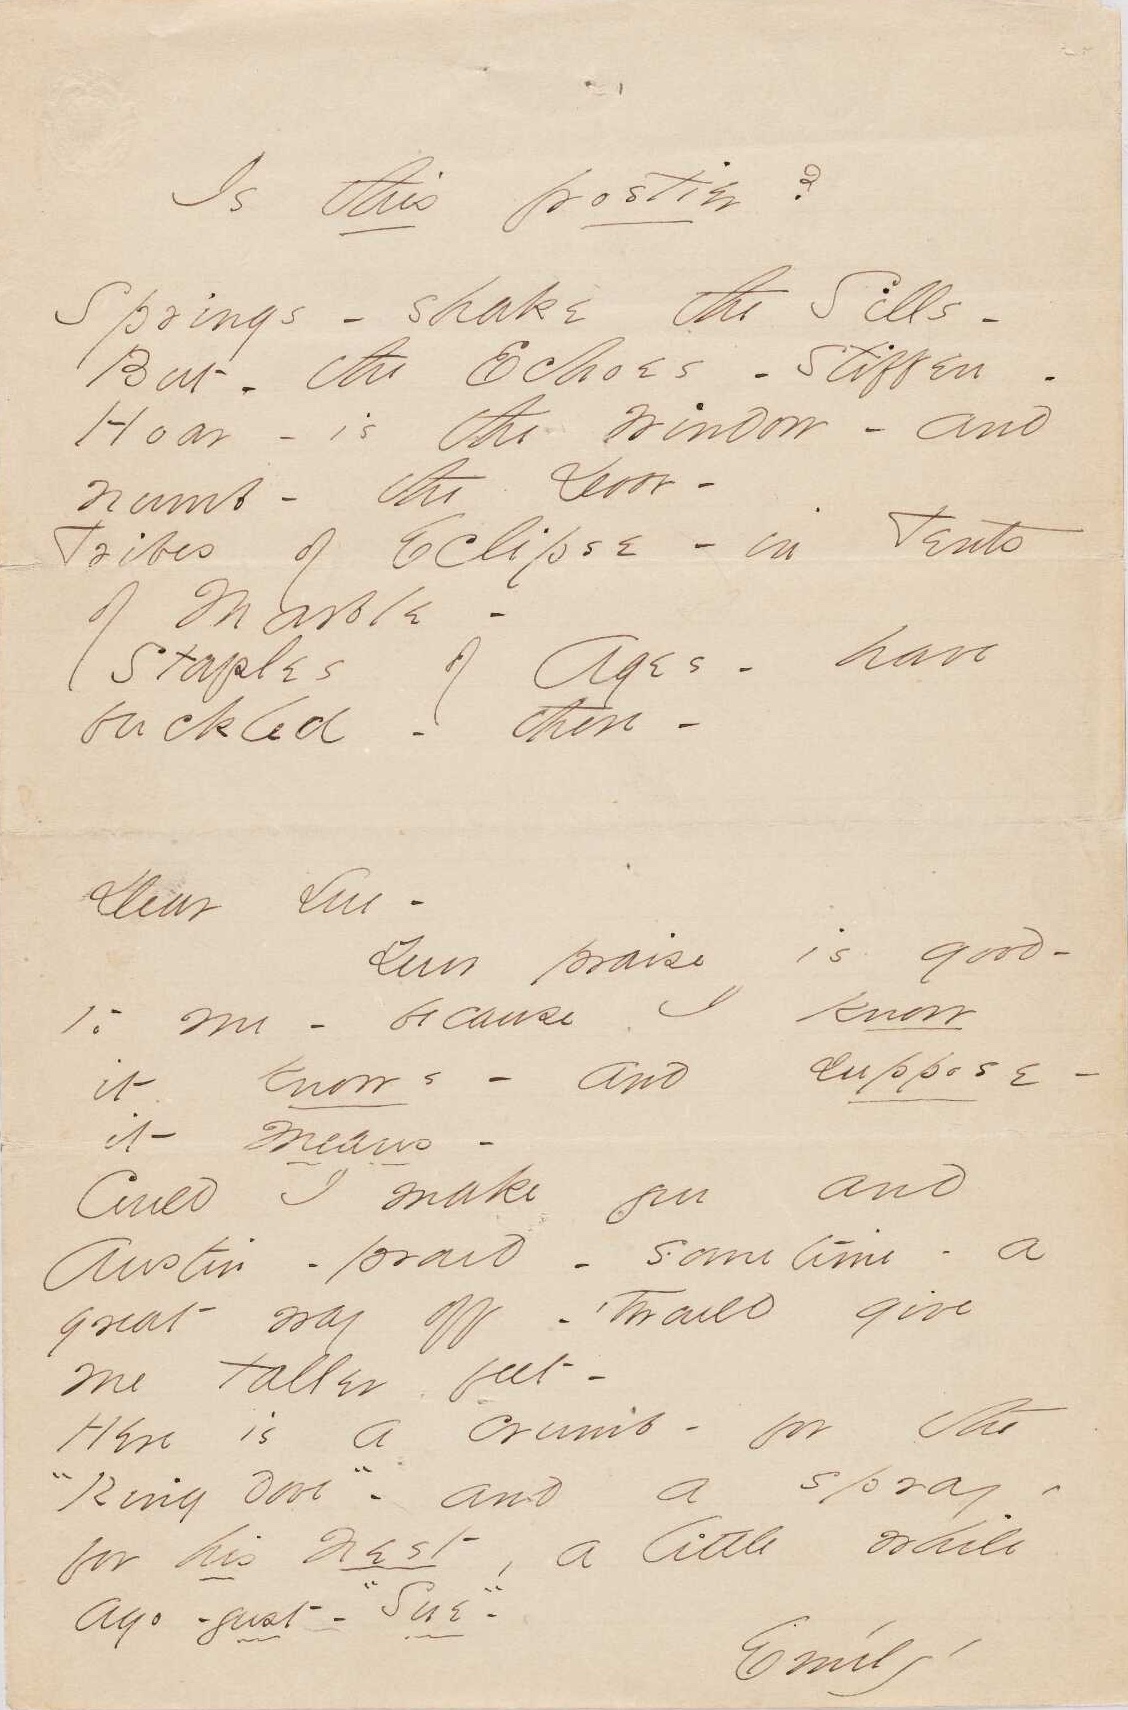 Is this frostier?
Springs - shake the Sills -
But - the Echoes - stiffen -
Hoar - is the Window - and
numb - the Door -
Tribes of Eclipse - in Tents
of Marble -
Staples of Ages - have
buckled - there -
Dear Sue -
Your praise is good -
to me - because I know
it knows - and suppose -
it means -
Could I make you and
Austin - proud - sometime - a
great way off - 'twould give
me taller feet -
Here is a crumb - for the
"Ring dove" - and a spray -
for his Nest, a little while
ago - just - "Sue" -
Emily